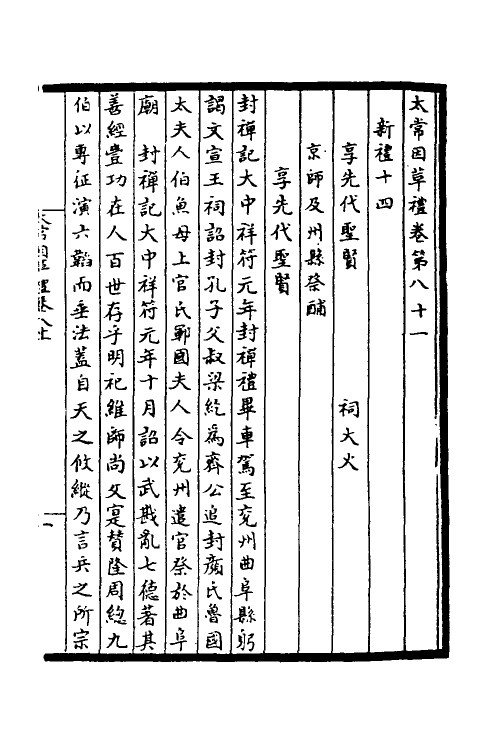 太常因革禮卷第八十一
新禮十四
享先代聖賢 祠大火
京師及州縣祭酺
享先代聖賢
封禪記大中祥符元年封禪禮畢車駕至兖州曲阜縣躬
謁文宣王祠詔封孔子父叔梁紇為齊公追封顔氏魯國
太夫人伯魚母上官氏鄆國夫人令兖州遣官祭於曲阜
廟 封禪記大中祥符元年十月詔以武戡亂七德著其
善經豊功在人百世存乎明祀維師尚父寔賛隆周緫九
伯以專征演六韜而垂法蓋自天之攸縱乃言兵之所宗